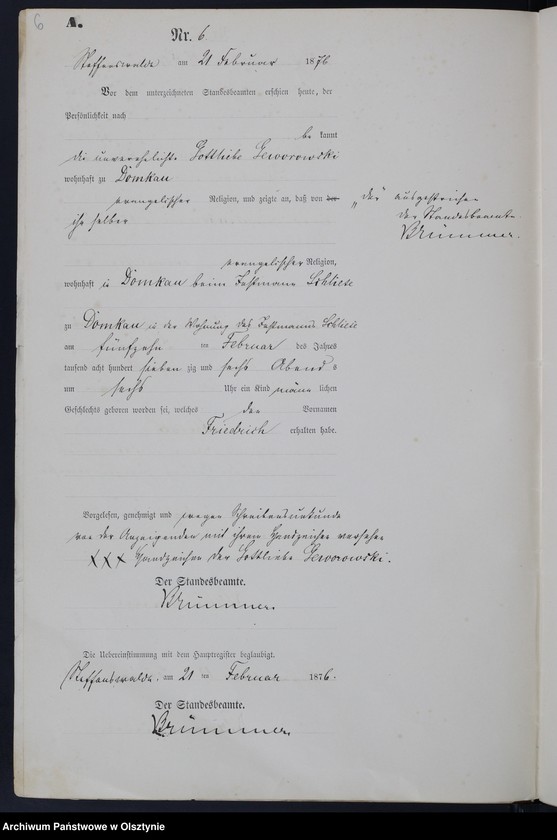 6
A.
Nr. 6
Steffenswalde am 21 Februar 1876
Vor dem unterzeichneten Standesbeamten erschien heute, der
Persönlichkeit nach
be kannt
die unverehelichte Gottliebe Geworowski
wohnhaft zu Domkau
evangelischer Religion, und zeigte an, daß von der
„der" ausgestrichen
Der Standesbeamte.
Brümmer.
ihr selber
evangelischer Religion,
wohnhaft in Domkau beim Schliese
zu Domkau in der Wohnung des Schliese
am fünfzehn ten Februar des Jahres
tausend acht hundert sieben zig und sechs Abend s
um sechs Uhr ein Kind männ lichen
Geschlechts geboren worden sei, welches den Vornamen
Friedrich erhalten habe.
Vorgelesen, genehmigt und wegen Schreibensunkunde
von der Anzeigenden mit ihrem Handzeichen versehen
XXX Handzeichen der Gottliebe Geworowski.
Der Standesbeamte.
Brümmer.
Die Uebereinstimmung mit dem Hauptregister beglaubigt.
Steffenswalde. am 21 ten Februar 1876.
Der Standesbeamte.
Brümmer.
Archiwum Państwowe w Olsztynie